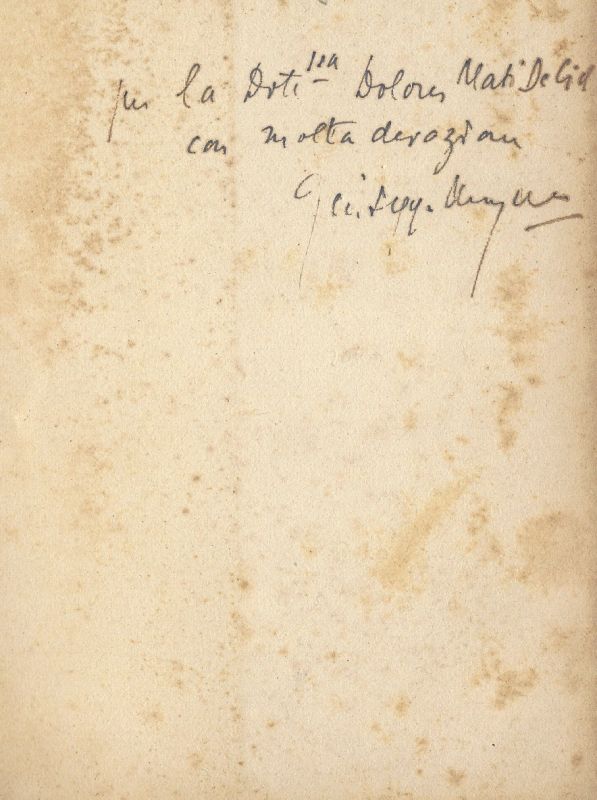 per la Dott.ssa Dolores Mati De Cid
con molta devozione
Giuseppe